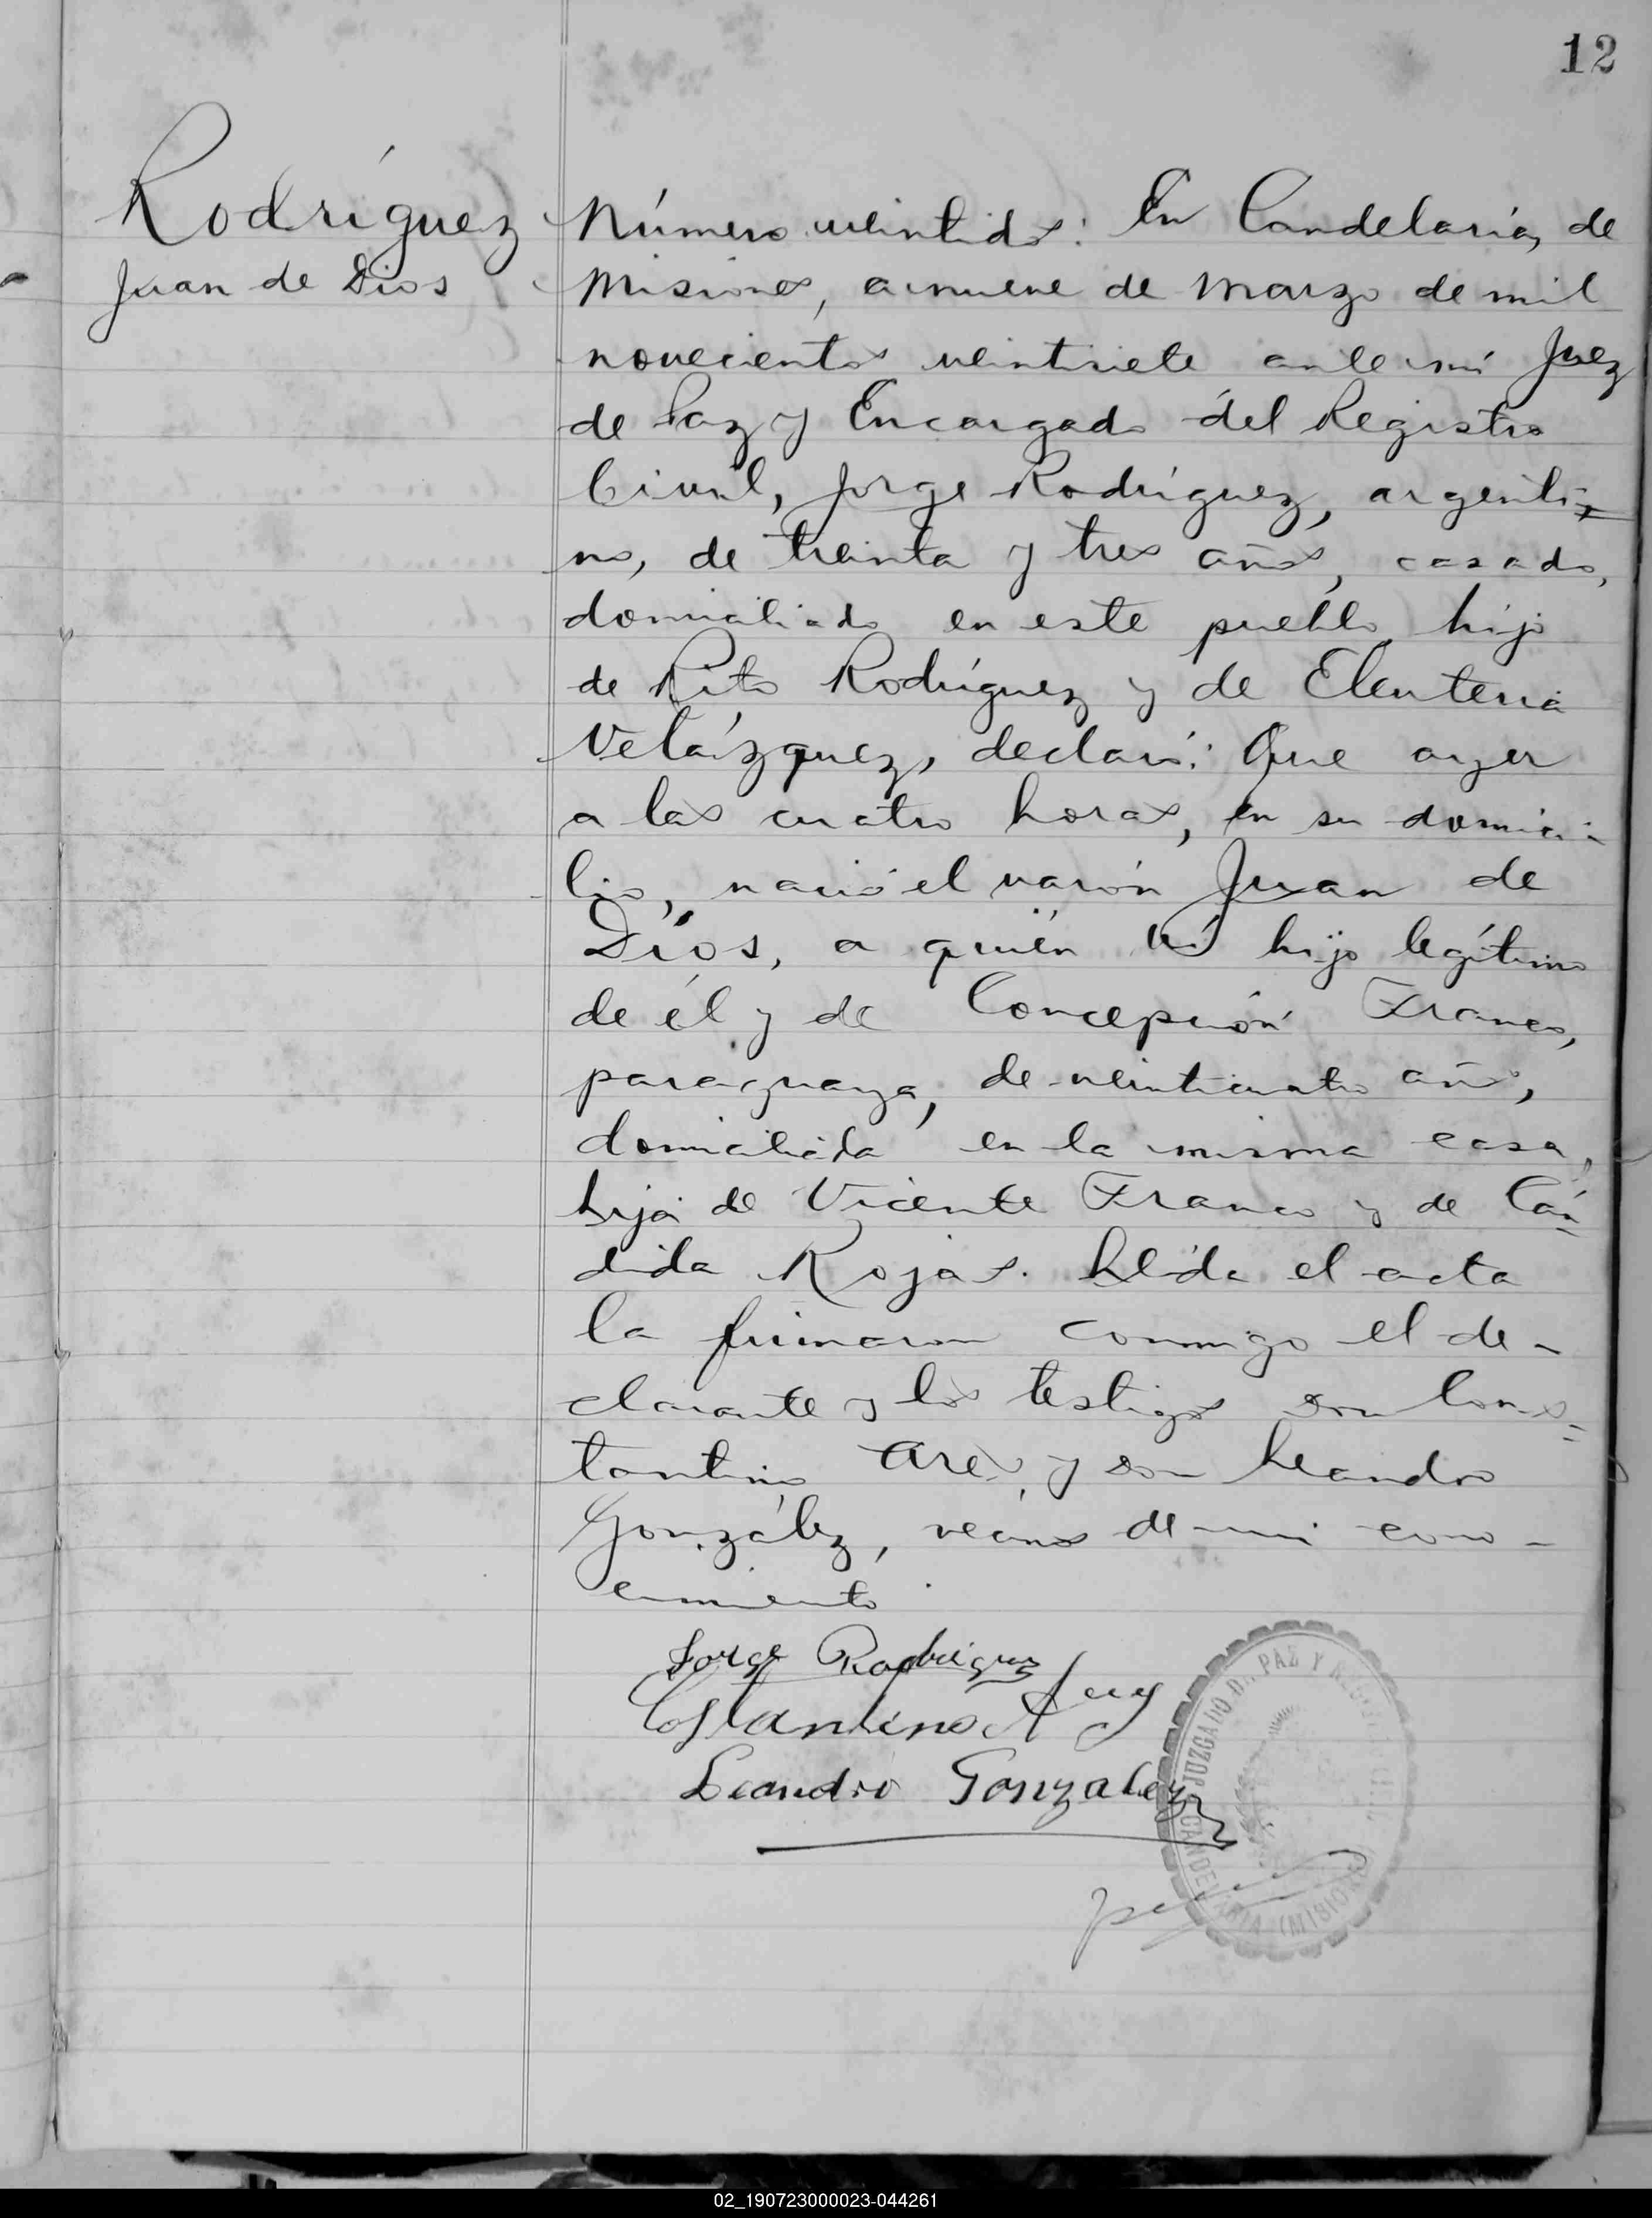 12
Rodríguez
Juan de Dios
Número veintidós: En Candelaria, de
Misiones, a nueve de Marzo de mil
novecientos veintisiete ante mí Juez
de Paz y Encargado del Registro
Civil, Jorge Rodríguez, argenti=
no, de treinta y tres años, casado,
domiciliado en este pueblo, hijo
de Rito Rodríguez y de Eleuteria
Velázquez, declaró: Que ayer
a las cuatro horas, en su domici-
lio, nació el varón Juan de
Dios, a quién ví hijo legítimo
de él y de Concepción Franco,
paraguaya, de veinticuatro años,
domiciliada en la misma casa,
hija de Vicente Franco y de Cán=
dida Rojas. Leída el acta
la firmaron conmigo el de-
clarante y los testigos don Cons=
tantino Are, y don Leandro
González, vecinos de mi cono-
cimiento.
Jorge Rodriguez
Costantino
Leandro Gonzalez
JUZGADO DE PAZ Y REGISTRO CIVIL
CANDELARIA (MISIONES)
02_190723000023-044261